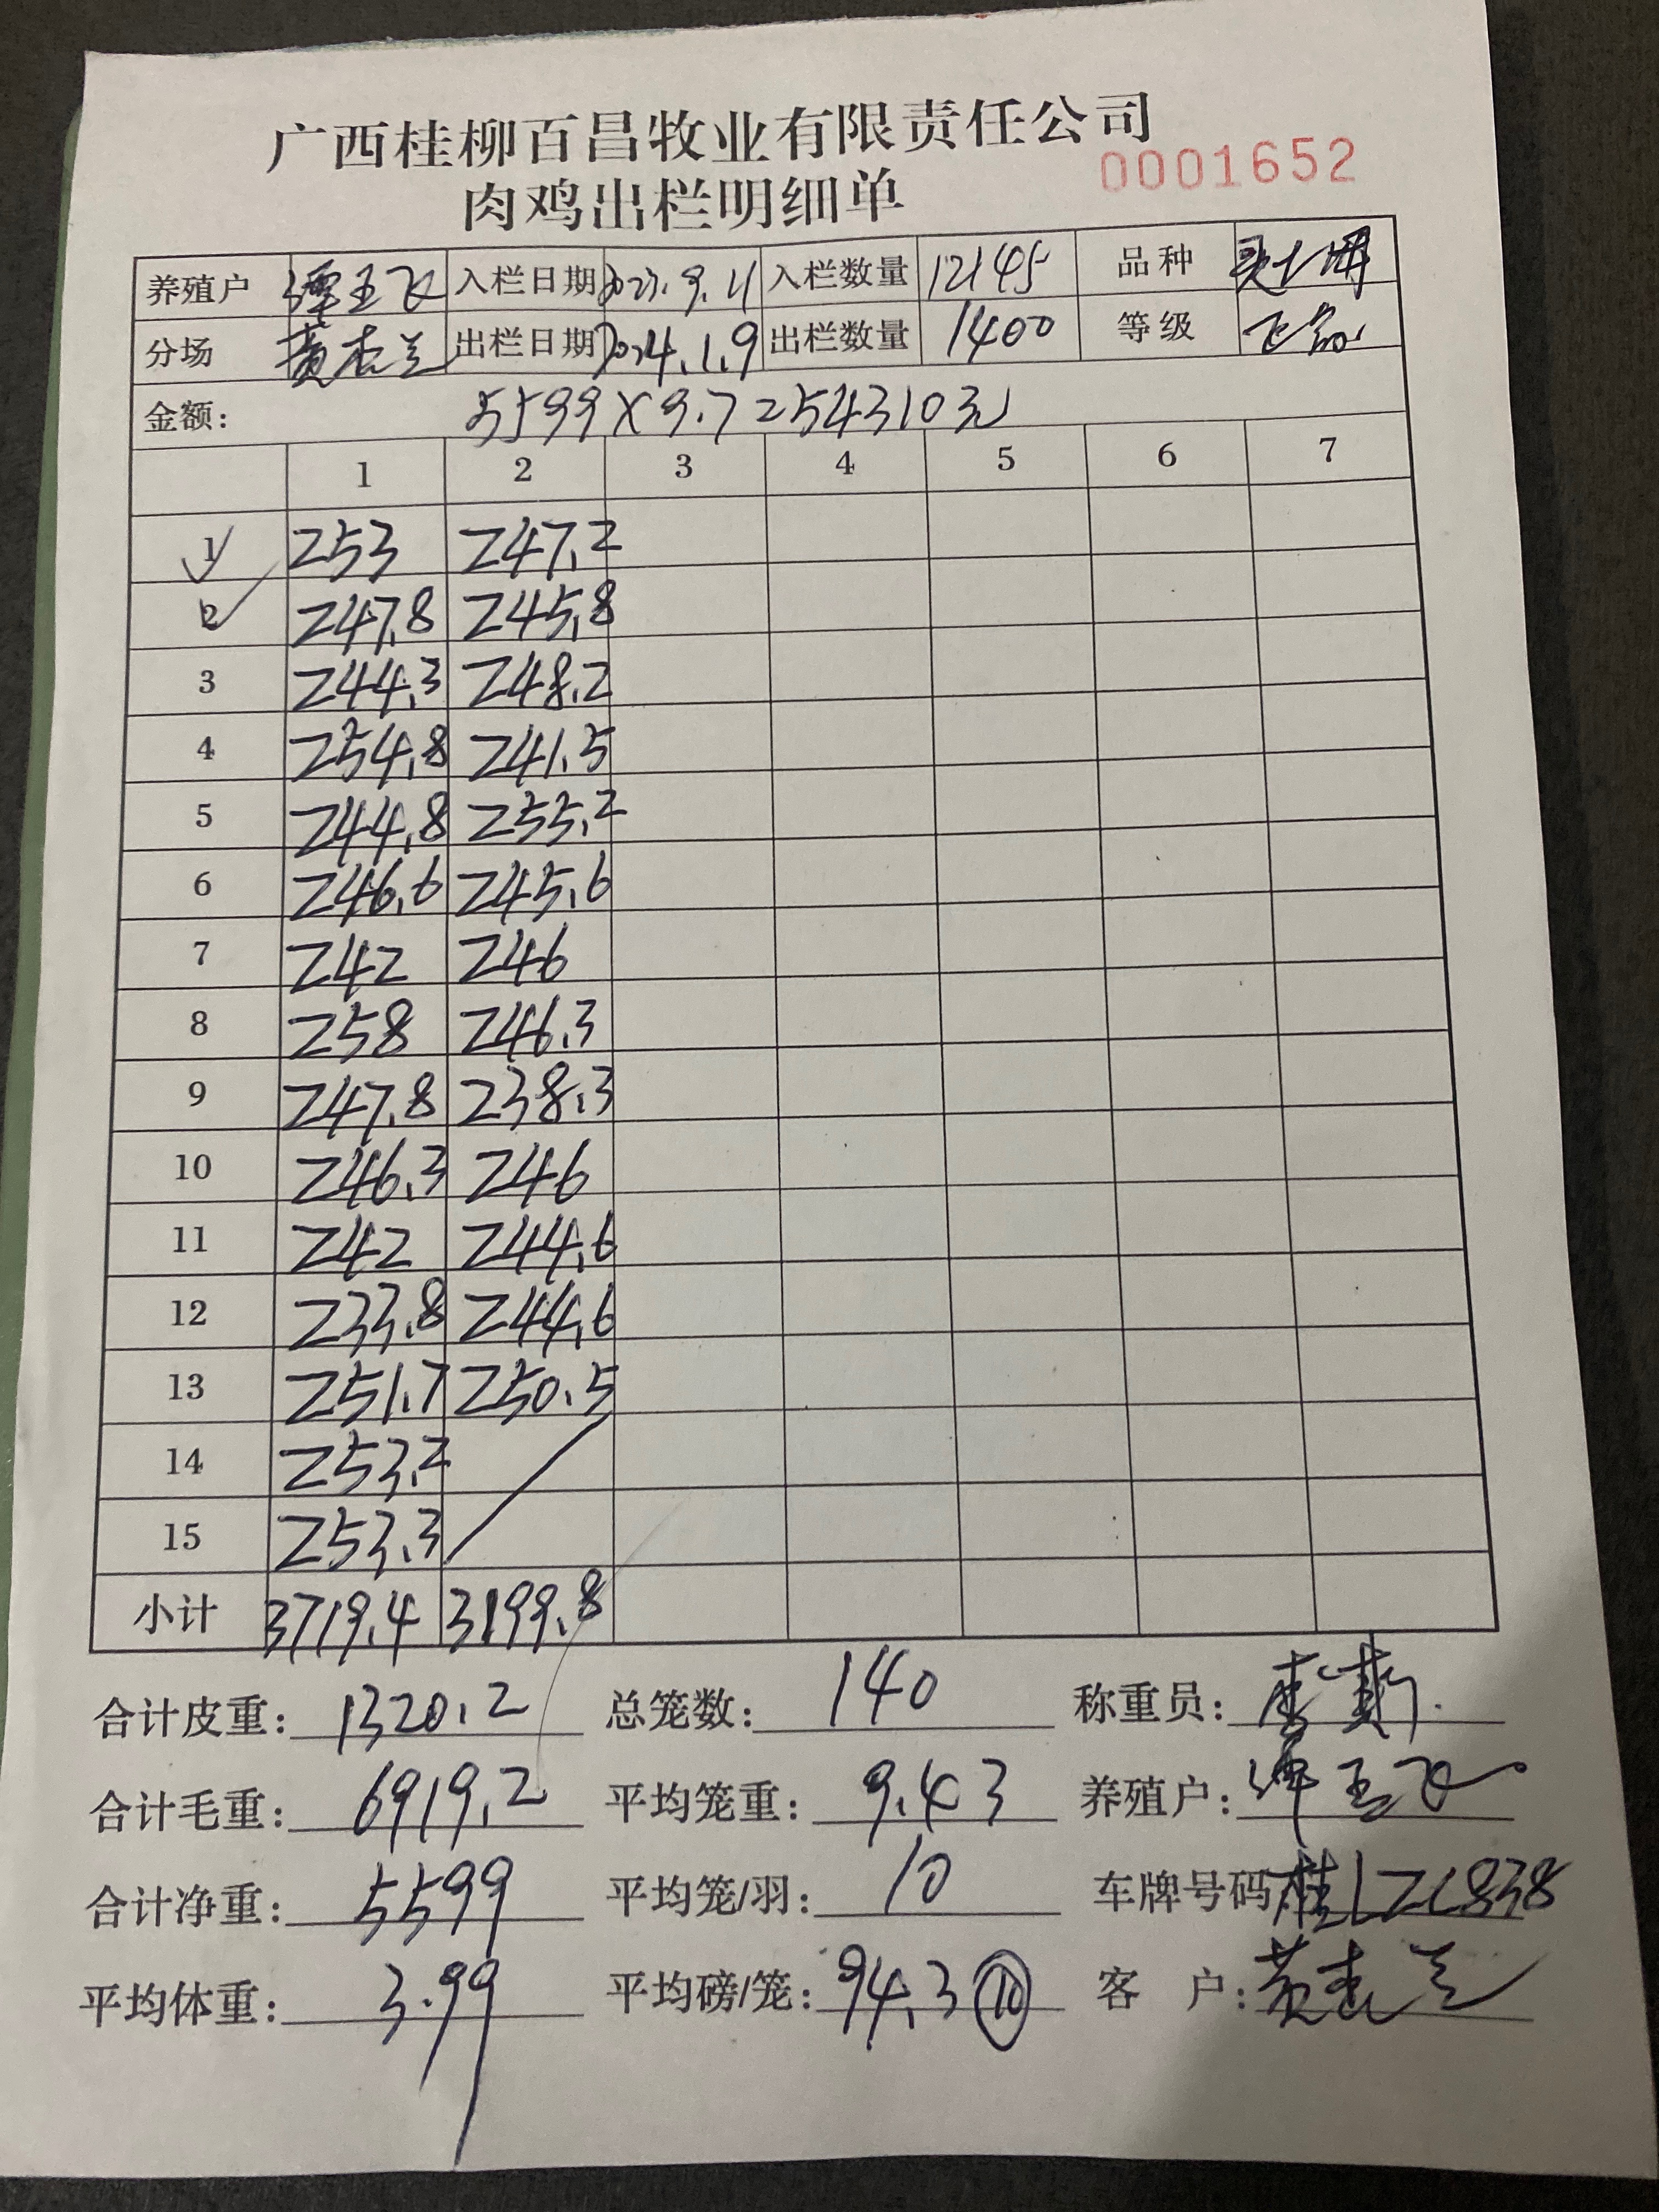 广西桂柳百昌牧业有限责任公司
0001652
肉鸡出栏明细单
养殖户 谭玉飞 入栏日期 2023.9.11 入栏数量 12145 品种
分场 黄杰兰 出栏日期 2024.1.9 出栏数量 1400 等级
金额: 5599×9.7=54310元
1 2 3 4 5 6 7
1 253 247.2
2 247.8 245.8
3 244.3 248.2
4 254.8 241.5
5 244.8 255.2
6 246.6 245.6
7 242 246
8 258 246.3
9 247.8 238.3
10 246.3 246
11 242 244.6
12 233.8 244.6
13 251.7 250.5
14 253.2
15 253.3
小计 3719.4 3199.8
合计皮重: 1320.2 总笼数: 140 称重员:
合计毛重: 6919.2 平均笼重: 9.43 养殖户: 谭玉飞
合计净重: 5599 平均笼/羽: 10 车牌号码 桂LZL838
平均体重: 3.99 平均磅/笼: 94.3 ⑩ 客 户: 黄杰兰